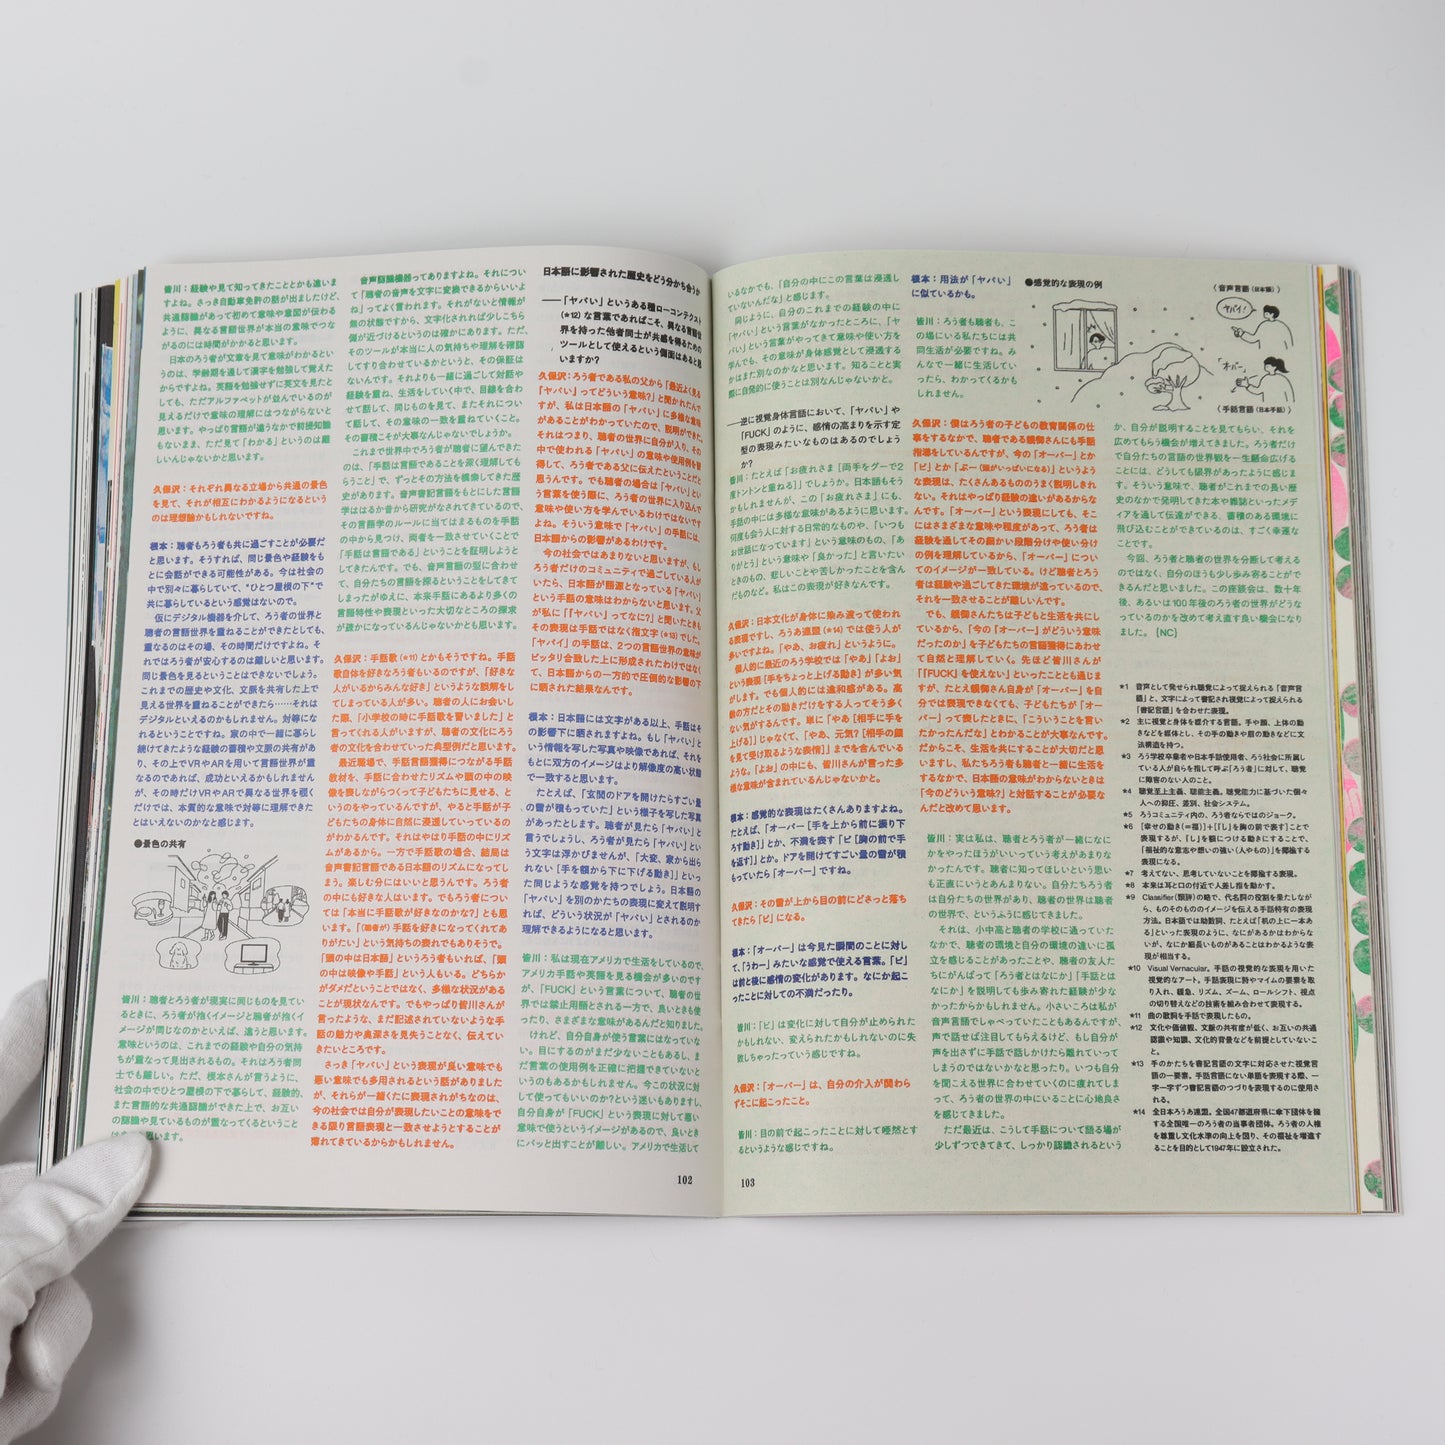 皆川：経験や見て知ってきたこととかも違い
ますよね。さっき自動車免許の話が出ましたけど、
共通認識があって初めて意味や意図が伝わる
ように、異なる言語世界が本当の意味でつな
がるのには時間がかかると思います。
日本のろう者が文章を見て意味がわかるとい
うのは、学齢期を通して漢字を勉強して覚えた
からですよね。英語を勉強せずに英文を見たと
しても、ただアルファベットが並んでいるのが
見えるだけで意味の理解にはつながらないと
思います。やっぱり言語が違うなかで前提知識
もないまま、ただ見て「わかる」というのは難
しいんじゃないかと思います。
久保沢：それぞれ異なる立場から共通の景色
を見て、それが相互にわかるようになるという
のは理想論かもしれないですね。
根本：聴者もろう者も共に過ごすことが必要だ
と思います。そうすれば、同じ景色や経験をも
とに会話ができる可能性がある。今は社会の
中で別々に暮らしていて、“ひとつ屋根の下”で
共に暮らしているという感覚はないので。
仮にデジタル機器を介して、ろう者の世界と
聴者の言語世界を重ねることができたとしても、
重なるのはその場、その時間だけですよね。そ
れではろう者が安心するのは難しいと思います。
同じ景色を見るということはできないでしょう。
これまでの歴史や文化、文脈を共有した上で
見える世界を重ねることができたら……それは
デジタルといえるのかもしれません。対等にな
れるということですね。家の中で一緒に暮らし
続けてきたような経験の蓄積や文脈の共有があ
り、その上でVRやARを用いて言語世界が重
なるのであれば、成功といえるかもしれません
が、その時だけVRやARで異なる世界を覗く
だけでは、本質的な意味で対等に理解できた
とはいえないのかなと感じます。
●景色の共有
皆川：聴者とろう者が現実に同じものを見てい
るときに、ろう者が抱くイメージと聴者が抱くイ
メージが同じなのかといえば、違うと思います。
意味というのは、これまでの経験や自分の気持
ちが重なって見出されるもの。それはろう者同
士でも難しい。ただ、根本さんが言うように、
社会の中でひとつ屋根の下で暮らして、経験的、
また言語的な共通認識ができた上で、お互い
の認識や見ているものが重なってくるというこ
思います。
音声認識機器ってありますよね。それについ
て「聴者の音声を文字に変換できるからいいよ
ね」ってよく言われます。それがないと情報が
無の状態ですから、文字化されれば少しこちら
側が近づけるというのは確かにあります。ただ、
そのツールが本当に人の気持ちや理解を確認
してすり合わせているかというと、その保証は
ないんです。それよりも一緒に過ごして対話や
経験を重ね、生活をしていく中で、目線を合わ
せて話して、同じものを見て、またそれについ
て話して、その意味の一致を重ねていくこと。
その蓄積こそが大事なんじゃないでしょうか。
これまで世界中でろう者が聴者に望んできた
のは、「手話は言語であることを深く理解しても
らうこと」で、ずっとその方法を模索してきた歴
史があります。音声書記言語をもとにした言語
学ははるか昔から研究がなされてきているので、
その言語学のルールに当てはまるものを手話
の中から見つけ、両者を一致させていくことで
「手話は言語である」ということを証明しようと
してきたんです。でも、音声言語の型に合わせ
て、自分たちの言語を探るということをしてき
てしまったがゆえに、本来手話にあるより多くの
言語特性や表現といった大切なところの探求
が疎かになっているんじゃないかとも思います。
久保沢：手話歌（*11）とかもそうですね。手話
歌自体を好きなろう者もいるのですが、「好きな
人がいるからみんな好き」というような誤解をし
てしまいがちですよね。聴者の人にお会いし
た際、「小学校の時に手話歌を習いました」と
言ってくれる人がいますが、聴者の文化にろう
者の文化を合わせていった典型例だと思います。
最近職場で、手話言語獲得につながる手話
教材を、手話に合わせたリズムや頭の中の映
像を壊しながらつくって子どもたちに見せる、と
いうのをやっているんですが、やると手話が子
どもたちの身体に自然に浸透していっているの
がわかるんです。それはやはり手話の中にリズ
ムがあるから。一方で手話歌の場合、結局は
音声書記言語である日本語のリズムになってし
まう。楽しむ分にはいいと思うんです。ろう者
の中にも好きな人はいます。でもろう者につい
ては「本当に手話歌が好きなのかな？」とも思
います。「（聴者が）手話を好きになってくれてあ
りがたい」という気持ちの表れでもありそう。
「頭の中は日本語」というろう者もいれば、「頭
の中は映像や手話」という人もいる。どちらか
がダメだということではなく、多様な状況がある
ことが現状なんです。でもやっぱり皆川さんが
言ったような、まだ記述されていないような手
話の魅力や奥深さを見失うことなく、伝えてい
きたいところです。
さっき「ヤバい」という表現が良い意味でも
悪い意味でも多用されるという話がありました
が、それらが一緒くたに表現されがちなのは、
今の社会では自分が表現したいことの意味をで
きる限り言語表現と一致させようとすることが
薄れてきているからかもしれません。
日本語に影響された歴史をどう分かち合うか
——「ヤバい」というある種ローコンテクスト
（*12）な言葉であればこそ、異なる言語世
界を持った他者同士が共感を得るための
ツールとして使えるという側面はあると思
いますか？
久保沢：ろう者である私の父から「最近よく見る
「ヤバい」ってどういう意味？」と聞かれたんで
すが、私は日本語の「ヤバい」に多様な意味
があることがわかっていたので、説明ができた。
それはつまり、聴者の世界に自分が入り、その
中で使われる「ヤバい」の意味や使用例を習
得して、ろう者である父に伝えたということだと
思うんです。でも聴者の場合は「ヤバい」とい
う言葉を使う際に、ろう者の世界に入り込んで
意味や使い方を学んでいるわけではないですよ
よね。そういう意味で「ヤバい」の手話には、
日本語からの影響があるわけです。
今の社会ではあまりないと思いますが、もし
ろう者だけのコミュニティで過ごしている人が
いたら、日本語が語源となっている「ヤバい」
という手話の意味はわからないと思います。父
が私に「「ヤバい」ってなに？」と聞いたときも、
その表現は手話ではなく指文字（*13）でした。
「ヤバイ」の手話は、2つの言語世界の意味が
ピッタリ合致した上に形成されたわけではなく
て、日本語からの一方的で圧倒的な影響の下
に晒された結果なんです。
根本：日本語には文字がある以上、手話はそ
の影響下に晒されますよね。もし「ヤバい」と
いう情報を写した写真や映像であれば、それを
もとに双方のイメージはより解像度の高い状態
で一致すると思います。
たとえば、「玄関のドアを開けたらすごい量
の雪が積もっていた」という様子を写した写真
があったとします。聴者が見たら「ヤバい」と
言うでしょうし、ろう者が見たら「ヤバい」とい
う文字は浮かびませんが、「大変、家から出ら
れない［手を額から下に下げる動き］」といっ
た同じような感覚を持つでしょう。日本語の
「ヤバい」を別のかたちの表現に変えて説明す
れば、どういう状況が「ヤバい」とされるのか
理解できるようになると思います。
皆川：私は現在アメリカで生活をしているので、
アメリカ手話や英語を見る機会が多いのです
が、「FUCK」という言葉について、聴者の世
界では禁止用語とされる一方で、良いときも使
ったり、さまざまな意味があるんだと知りました。
けれど、自分自身が使う言葉にはなっていな
い。目にするのがまだ少ないこともあるし、ま
だ言葉の使用例を正確に把握できていないと
いうのもあるかもしれません。今この状況に対
して使ってもいいのか？という迷いもありますし、
自分自身が「FUCK」という表現に対して悪い
意味で使うというイメージがあるので、良いとき
にパッと出すことが難しい。アメリカで生活して
102
いるなかでも、「自分の中にこの言葉は浸透し
ていないんだな」と感じます。
同じように、自分のこれまでの経験の中に
「ヤバい」という言葉がなかったところに、「ヤ
バい」という言葉がやってきて意味や使い方を
学んでも、その意味が身体感覚として浸透する
かはまた別なのかなと思います。知ることと実
際に自発的に使うことは別なんじゃないかと。
——逆に視覚身体言語において、「ヤバい」や
「FUCK」のように、感情の高まりを示す定
型の表現みたいなものはあるのでしょう
か？
皆川：たとえば「お疲れさま［両手をグーで2
度トントンと重ねる］」でしょうか。日本語もそう
かもしれませんが、この「お疲れさま」にも、
手話の中には多様な意味があるように思います。
何度も会う人に対する日常的なものや、「いつも
お世話になっています」という意味のもの、「あ
りがとう」という意味や「良かった」と言いたい
ときのもの、悲しいことや苦しかったことを含ん
だものなど。私はこの表現が好きなんです。
久保沢：日本文化が身体に染み渡って使われ
る表現ですし、ろうあ連盟（*14）では使う人が
多いですよね。「やあ、お疲れ」というように。
個人的に最近のろう学校では「やあ」「よお」
という表現［手をちょっと上げる動き］が多い気
がします。でも個人的には違和感がある。高
齢の方だとその動きだけをする人ってそう多く
ない気がするんです。単に「やあ［相手に手を
上げる］」じゃなくて、「やあ、元気？［相手の顔
を見て受け取るような表情］」までを含んでいる
ような。「よお」の中にも、皆川さんが言った多
様な意味が含まれているんじゃないかと。
根本：感覚的な表現はたくさんありますよね。
たとえば、「オーバー［手を上から前に振り下
ろす動き］」とか、不満を表す「ピ［胸の前で手
を返す］」とか。ドアを開けてすごい量の雪が積
もっていたら「オーバー」ですね。
久保沢：その雪が上から目の前にどさっと落ち
てきたら「ピ」になる。
根本：「オーバー」は今見た瞬間のことに対し
て、「うわー」みたいな感覚で使える言葉。「ピ」
は前と後に感情の変化があります。なにか起こ
ったことに対しての不満だったり。
皆川：「ピ」は変化に対して自分が止められた
かもしれない、変えられたかもしれないのに失
敗しちゃったっていう感じですね。
久保沢：「オーバー」は、自分の介入が関わら
ずそこに起こったこと。
皆川：目の前で起こったことに対して唖然とす
るというような感じですね。
根本：用法が「ヤバい」
に似ているかも。
皆川：ろう者も聴者も、こ
の場にいる私たちには共
同生活が必要ですね。み
んなで一緒に生活してい
ったら、わかってくるかも
しれません。
久保沢：僕はろう者の子どもの教育関係の仕
事をするなかで、聴者である親御さんにも手話
指導をしているんですが、今の「オーバー」とか
「ピ」とか「ぷー（頭がいっぱいになる）」というよう
な表現は、たくさんあるもののうまく説明しきれ
ない。それはやっぱり経験の違いがあるからな
んです。「オーバー」という表現にしても、そこ
にはさまざまな意味や程度があって、ろう者は
経験を通してその細かい段階分けや使い分け
の例を理解しているから、「オーバー」につい
てのイメージが一致している。けど聴者とろう
者は経験や過ごしてきた環境が違っているので、
それを一致させることが難しいんです。
でも、親御さんたちは子どもと生活を共にし
ているから、「今の「オーバー」がどういう意味
だったのか」を子どもたちの言語獲得にあわせ
て自然と理解していく。先ほど皆川さんが
「「FUCK」を使えない」といったことも通じま
すが、たとえ親御さん自身が「オーバー」を自
分では表現できなくても、子どもたちが「オー
バー」って表したときに、「こういうことを言い
たかったんだな」とわかることが大事なんです。
だからこそ、生活を共にすることが大切だと思
いますし、私たちろう者も聴者と一緒に生活を
するなかで、日本語の意味がわからないときは
「今のどういう意味？」と対話することが必要な
んだと改めて思います。
皆川：実は私は、聴者とろう者が一緒になに
かをやったほうがいいっていう考えがあまりな
かったんです。聴者に知ってほしいという思い
も正直いうとあんまりない。自分たちろう者は
は自分たちの世界があり、聴者の世界は聴者
の世界で、というふうに感じてきました。
それは、小中高と聴者の学校に通っていた
なかで、聴者の環境と自分の環境の違いに孤
立を感じることがあったことや、聴者の友人た
ちにがんばって「ろう者とはなにか」「手話とは
なにか」を説明しても歩み寄れた経験が少な
かったからかもしれません。小さいころは私が
音声言語でしゃべっていたこともあるんですが、
声で話せば注目してもらえるけど、もし自分が
声を出さずに手話で話しかけたら離れていって
しまうのではないかなと思ったり。いつも自分
を聞こえる世界に合わせていくのに疲れてしま
って、ろう者の世界の中にいることに心地良さ
を感じてきました。
ただ最近は、こうして手話について語る場が
少しずつできてきて、しっかり認識されるという
●感覚的な表現の例
〈音声言語（日本語）〉
ヤバイ！
“オーバー„
〈手話言語（日本手話）〉
か、自分が説明することを見てもらい、それを
広めてもらう機会が増えてきました。ろう者だけ
で自分たちの言語の世界観を一生懸命広げる
ことには、どうしても限界があったように感じま
す。そういう意味で、聴者がこれまでの長い歴
史のなかで発明してきた本や雑誌といったメデ
ィアを通して伝達ができる、蓄積のある環境に
飛び込むことができているのは、すごく幸運な
ことです。
今回、ろう者と聴者の世界を分断して考える
のではなく、自分のほうも少し歩み寄ることがで
きるんだと思いました。この座談会は、数十年
後、あるいは100年後のろう者の世界がどうな
っているのかを改めて考え直す良い機会になり
ました。［NC］
*1 音声として発せられ聴覚によって捉えられる「音声言
語」と、文字によって書記され視覚によって捉えられる
「書記言語」を合わせた表現。
*2 主に視覚と身体を媒介する言語。手や顔、上体の動
きなどを媒体とし、その手の動きや眉の動きなどに文
法構造を持つ。
*3 ろう学校卒業者や日本手話使用者、ろう社会に所属し
ている人が自らを指して呼ぶ「ろう者」に対して、聴覚
に障害のない人のこと。
*4 聴覚至上主義、聴能主義。聴覚能力に基づいた個々
人への抑圧、差別、社会システム。
*5 ろうコミュニティ内の、ろう者ならではのジョーク。
*6 ［幸せの動き（＝福）］＋［「し」を胸の前で表す］ことで
表現するが、「し」を額につける動きにすることで、
「福祉的な意志や想いの強い（人やもの）」を揶揄する
表現になる。
*7 考えてない、思考していないことを揶揄する表現。
*8 本来は耳と口の付近で人差し指を動かす。
*9 Classifier（類辞）の略で、代名詞の役割を果たしなが
ら、ものそのもののイメージを伝える手話特有の表現
方法。日本語では助数詞、たとえば「机の上に一本あ
る」といった表現のように、なにがあるかはわからな
いが、なにか細長いものがあることはわかるような表
現が相当する。
*10 Visual Vernacular。手話の視覚的な表現を用いた
視覚的なアート。手話表現に詩やマイムの要素を取
り入れ、緩急、リズム、ズーム、ロールシフト、視点
の切り替えなどの技術を組み合わせて表現する。
*11 曲の歌詞を手話で表現したもの。
*12 文化や価値観、文脈の共有度が低く、お互いの共通
認識や知識、文化的背景などを前提としていないこ
と。
*13 手のかたちを書記言語の文字に対応させた視覚言
語の一要素。手話言語にない単語を表現する際、一
字一字ずつ書記言語のつづりを表現するのに使用さ
れる。
*14 全日本ろうあ連盟。全国47都道府県に傘下団体を擁
する全国唯一のろう者の当事者団体。ろう者の人権
を尊重し文化水準の向上を図り、その福祉を増進す
ることを目的として1947年に設立された。
103